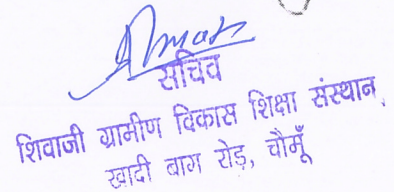 सचिव
शिवाजी ग्रामीण विकास शिक्षा संस्थान,
खादी बाग रोड़, चौमूँ